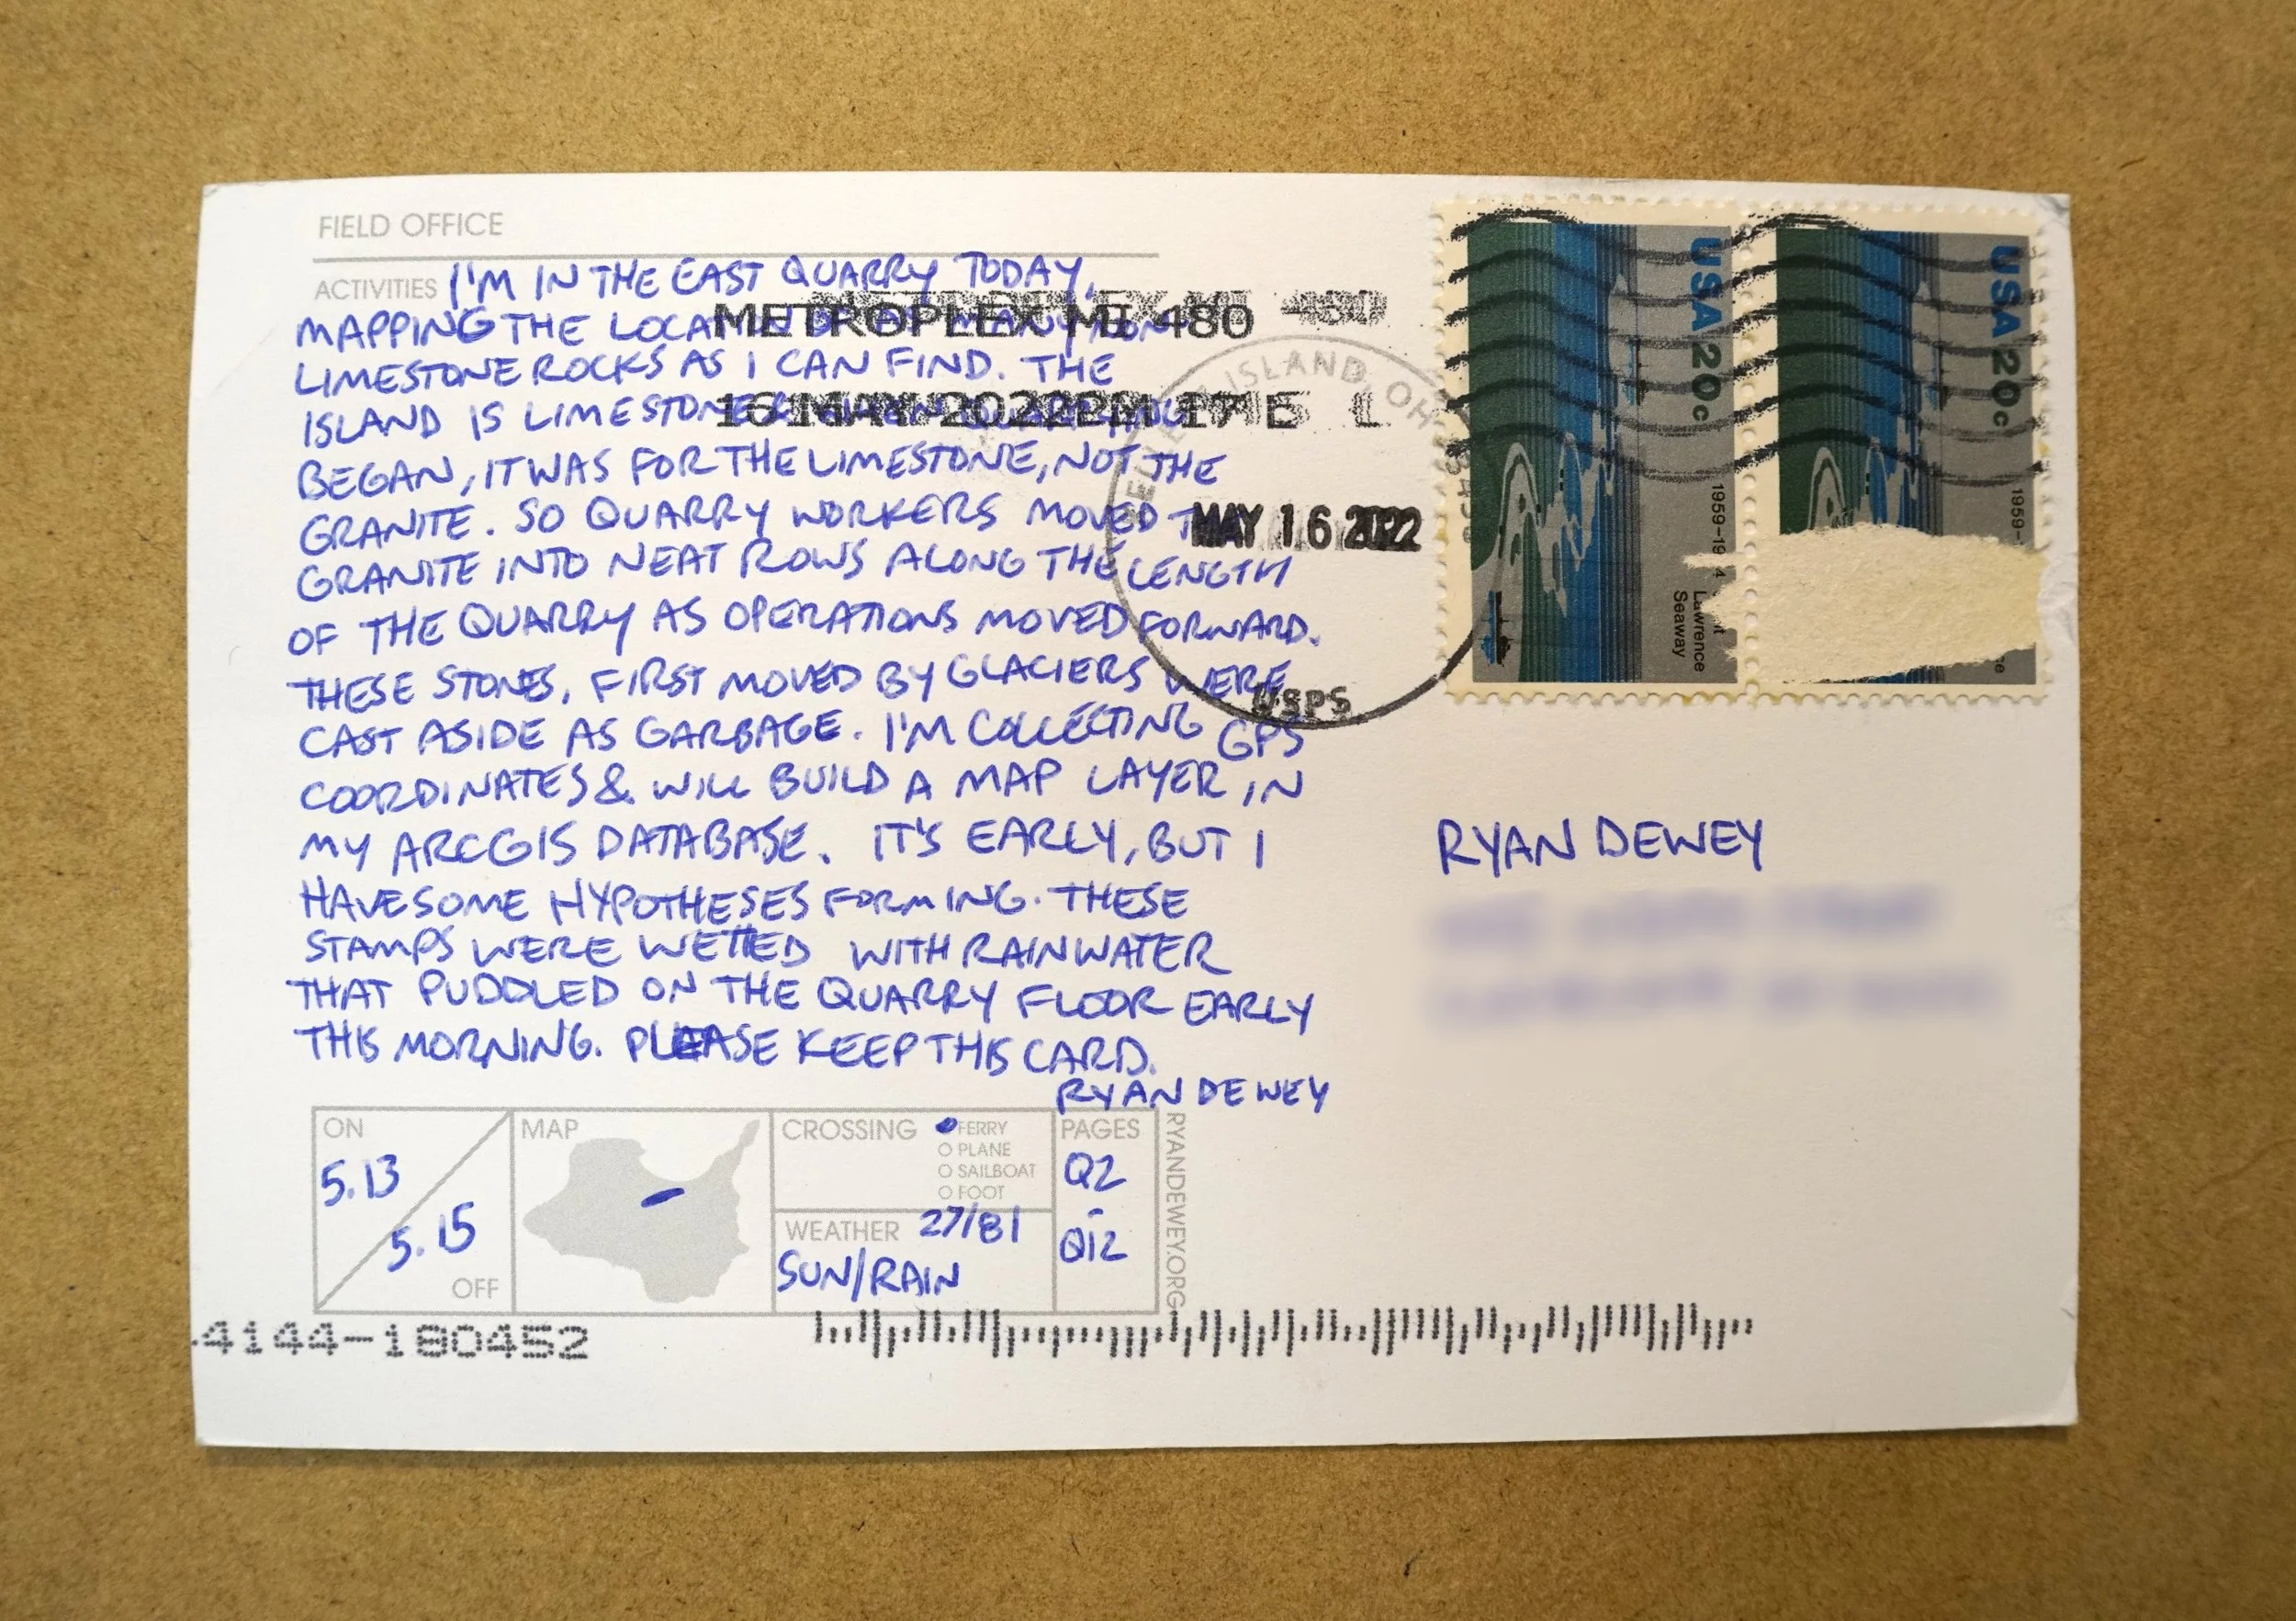 FIELD OFFICE
ACTIVITIES I'M IN THE EAST QUARRY TODAY,
MAPPING THE LOCATION OF AS MANY NON-
LIMESTONE ROCKS AS I CAN FIND. THE
ISLAND IS LIMESTONE & WHEN QUARRYING
BEGAN, IT WAS FOR THE LIMESTONE, NOT THE
GRANITE. SO QUARRY WORKERS MOVED THE
GRANITE INTO NEAT ROWS ALONG THE LENGTH
OF THE QUARRY AS OPERATIONS MOVED FORWARD.
THESE STONES, FIRST MOVED BY GLACIERS WERE
CAST ASIDE AS GARBAGE. I'M COLLECTING GPS
COORDINATES & WILL BUILD A MAP LAYER IN
MY ARCGIS DATABASE. IT'S EARLY, BUT I
HAVE SOME HYPOTHESES FORMING. THESE
STAMPS WERE WETTED WITH RAINWATER
THAT PUDDLED ON THE QUARRY FLOOR EARLY
THIS MORNING. PLEASE KEEP THIS CARD.
RYAN DEWEY
METROPLEX MI 480
16 MAY 2022 PM 17 E L
ISLAND, OH
MAY 16 2022
USPS
USA 20c
1959-19 4
Lawrence
Seaway
USA 20c
1959-
RYAN DEWEY
ON
5.13
5.15
OFF
MAP
CROSSING
FERRY
PLANE
SAILBOAT
FOOT
WEATHER 27/81
SUN/RAIN
PAGES
Q2
-
Q12
RYANDEWEY.ORG
4144-180452